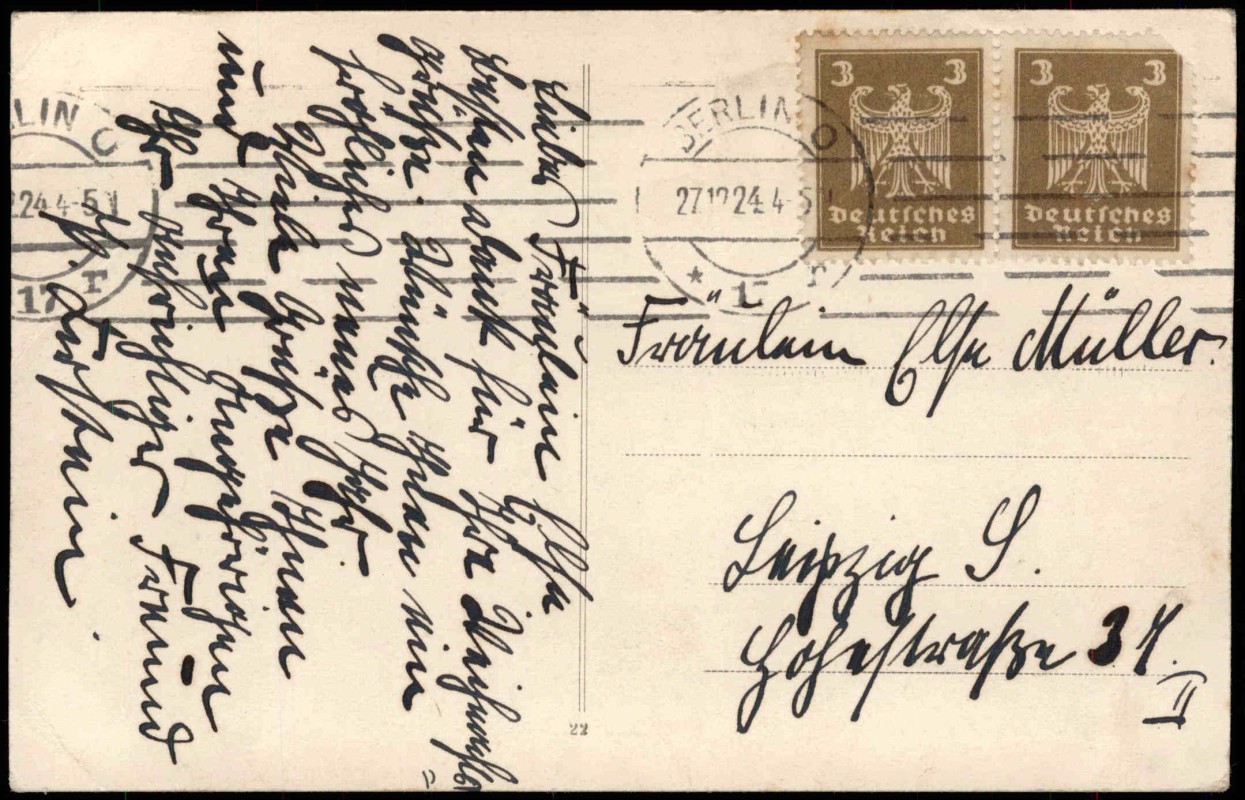 Liebes Fräulein Else
besten Dank für Ihre Weihnachts=
grüße. Wünsche Ihnen ein
fröhliches neues Jahr
Viele Grüße Ihnen
und Ihren Angehörigen
Ihr aufrichtiger Freund
22
BERLIN O
27.12.24. 4-5
* 17 r
LIN O
.24. 4-5
17 r
3 3
Deutsches
Reich
3 3
Deutsches
Reich
Fräulein Else Müller.
Leipzig S.
Hohestraße
II